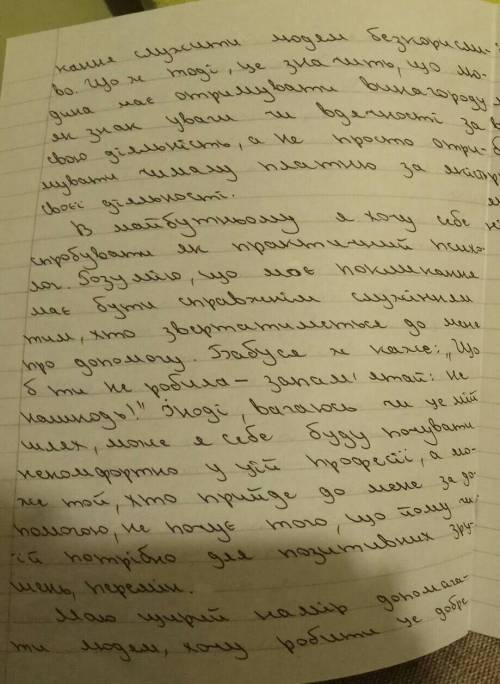 кання служити людям безкорисли-
во. Що ж тоді, це значить, що лю-
дина має отримувати винагороду
як знак уваги чи вдячності за
свою діяльність, а не просто отри-
мувати чималу платню за якість
своєї діяльності.
В майбутньому я хочу себе
спробувати як практичний психо-
лог. Розумію, що моє покликання
має бути справжнім служінням
тим, хто звертатиметься до мене
про допомогу. Бабуся ж каже: „Що
б ти не робила — запам'ятай: не
нашкодь!" Іноді, вагаюсь чи це мій
шлях, може я себе буду почувати
некомфортно у цій професії, а мо-
же той, хто прийде до мене за до-
помогою, не почує того, що йому чи
їй потрібно для позитивних зру-
шень, перемін.
Маю щирий намір допомага-
ти людям, хочу робити це добре